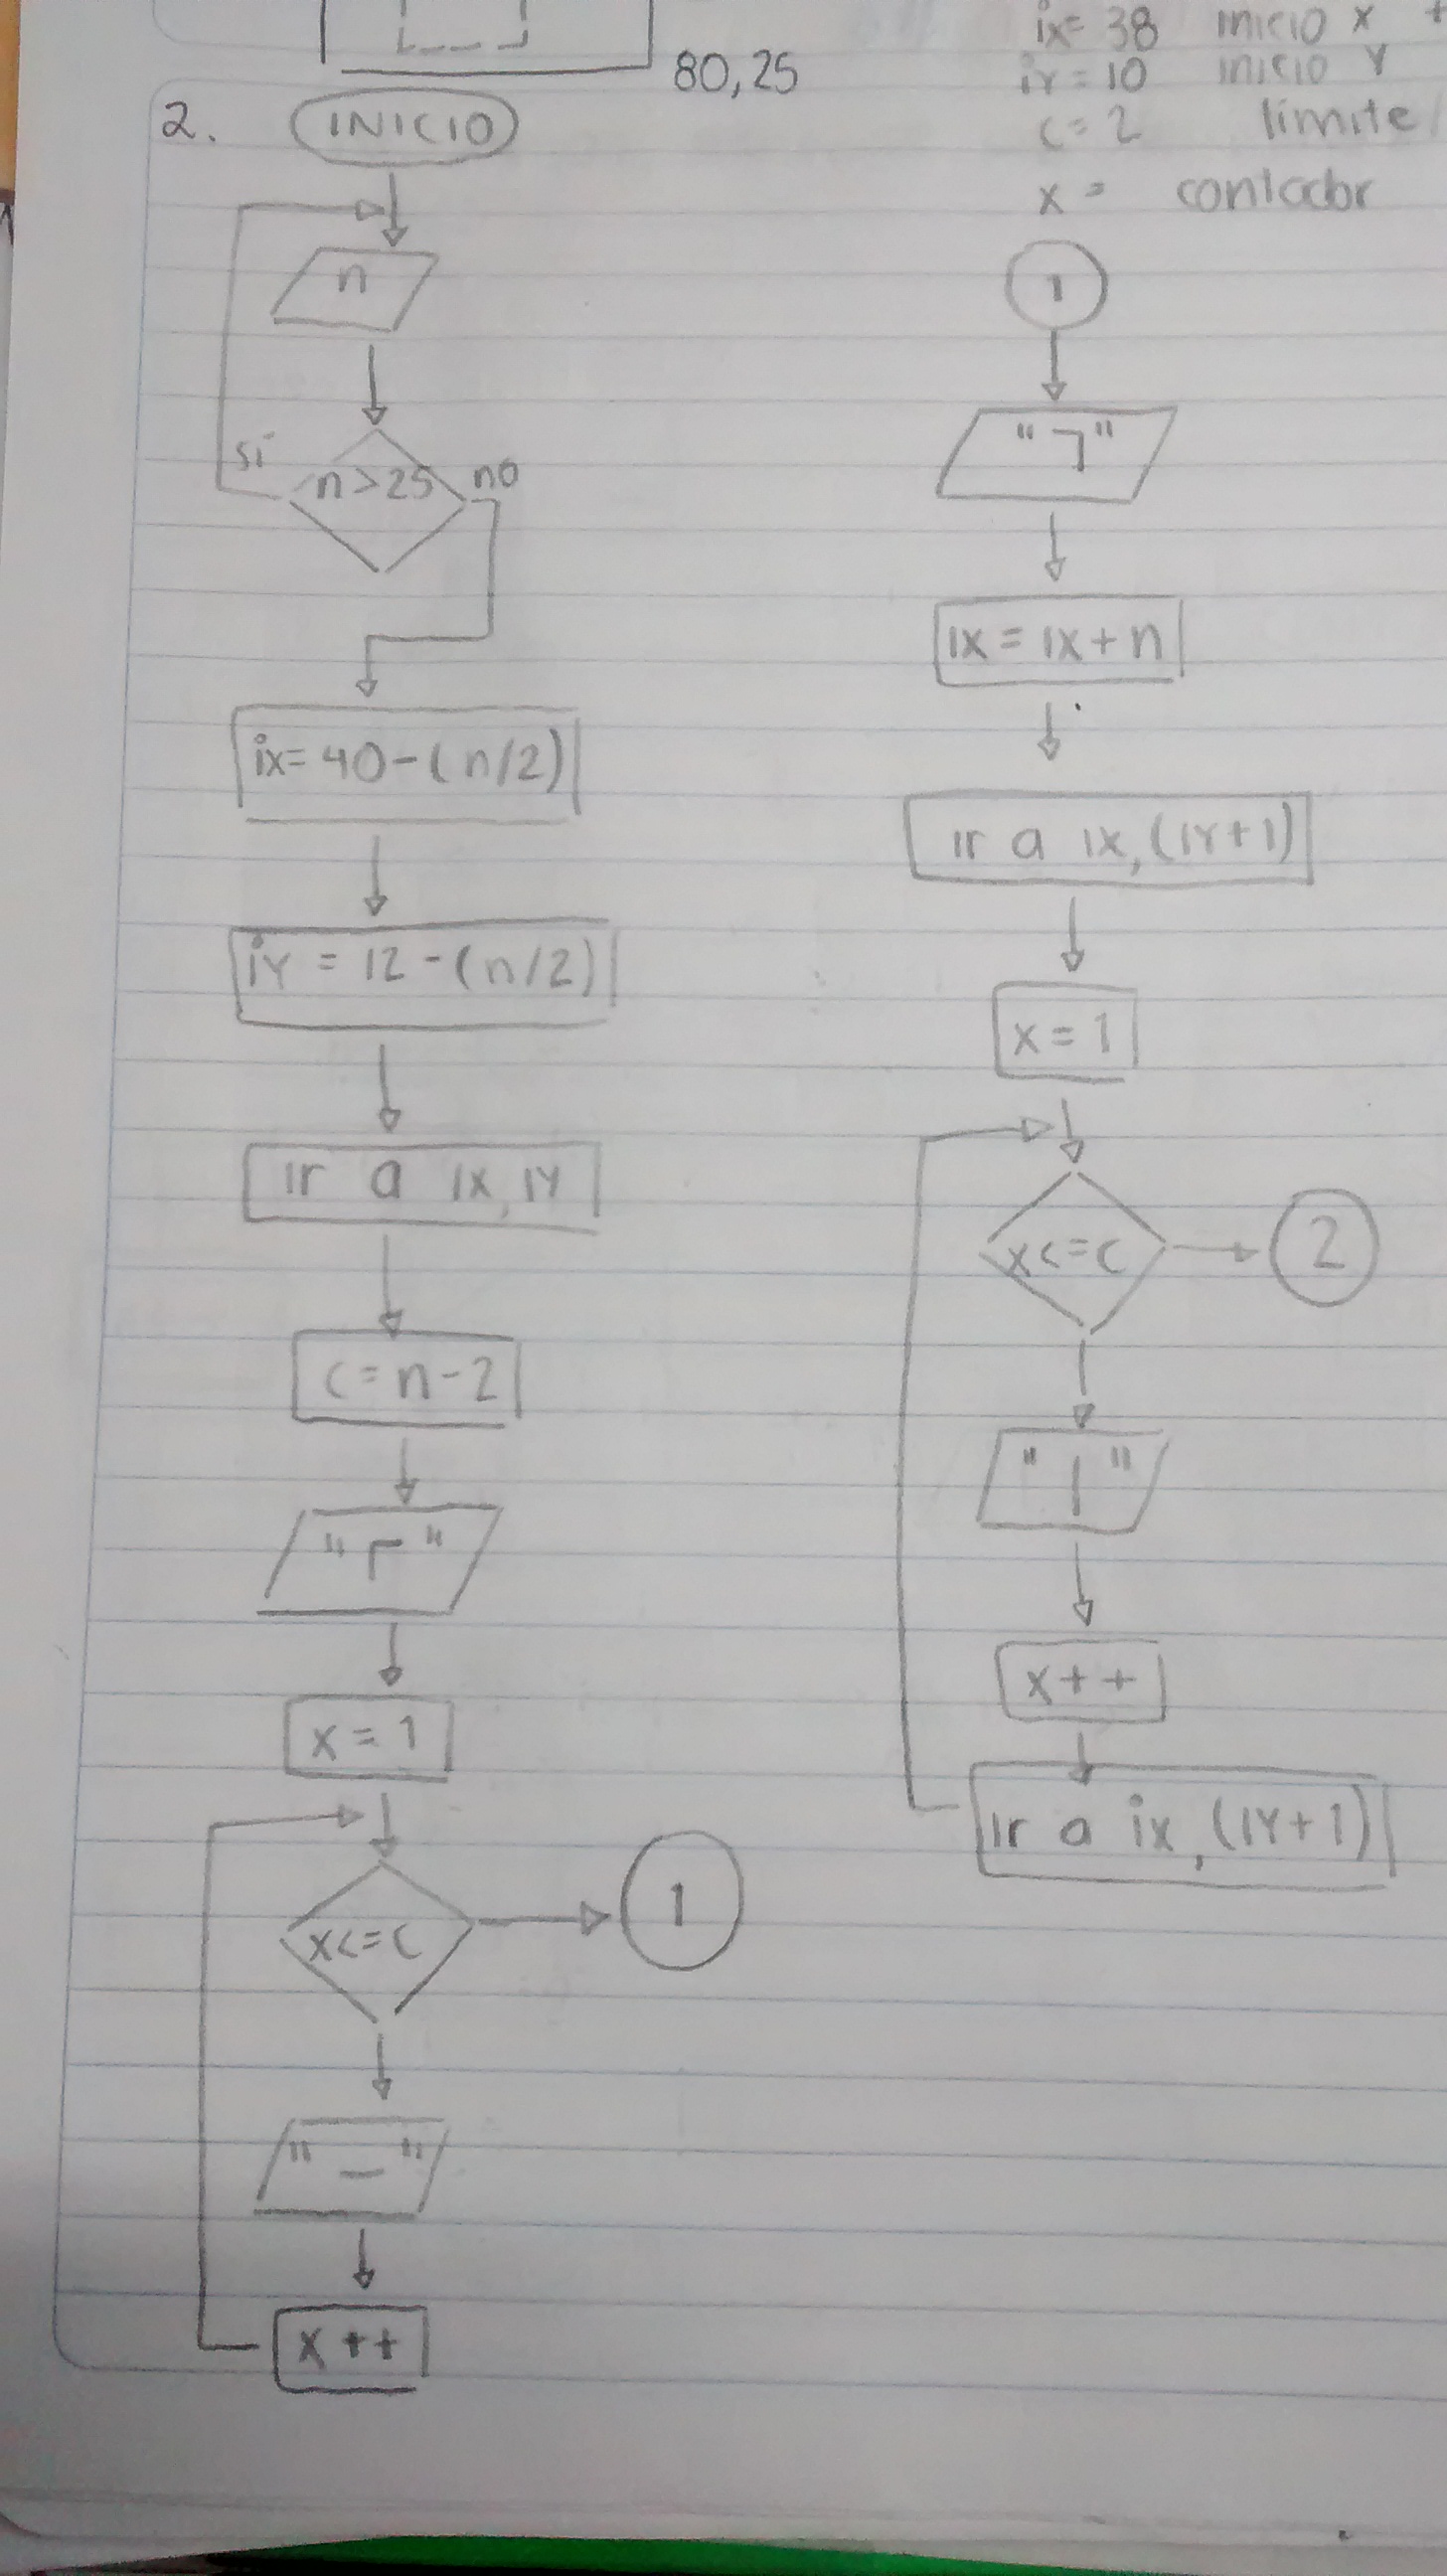 80,25
ix= 38 inicio x
iy=10 inicio y
c=2 limite
x= contador
2. INICIO
n
n>25
si
no
ix=40-(n/2)
iy = 12-(n/2)
ir a ix, iy
c=n-2
"┌"
x=1
x<=c
1
"—"
x++
1
"┐"
ix=ix+n
ir a ix,(iy+1)
x=1
x<=c
2
"|"
x++
ir a ix,(iy+1)